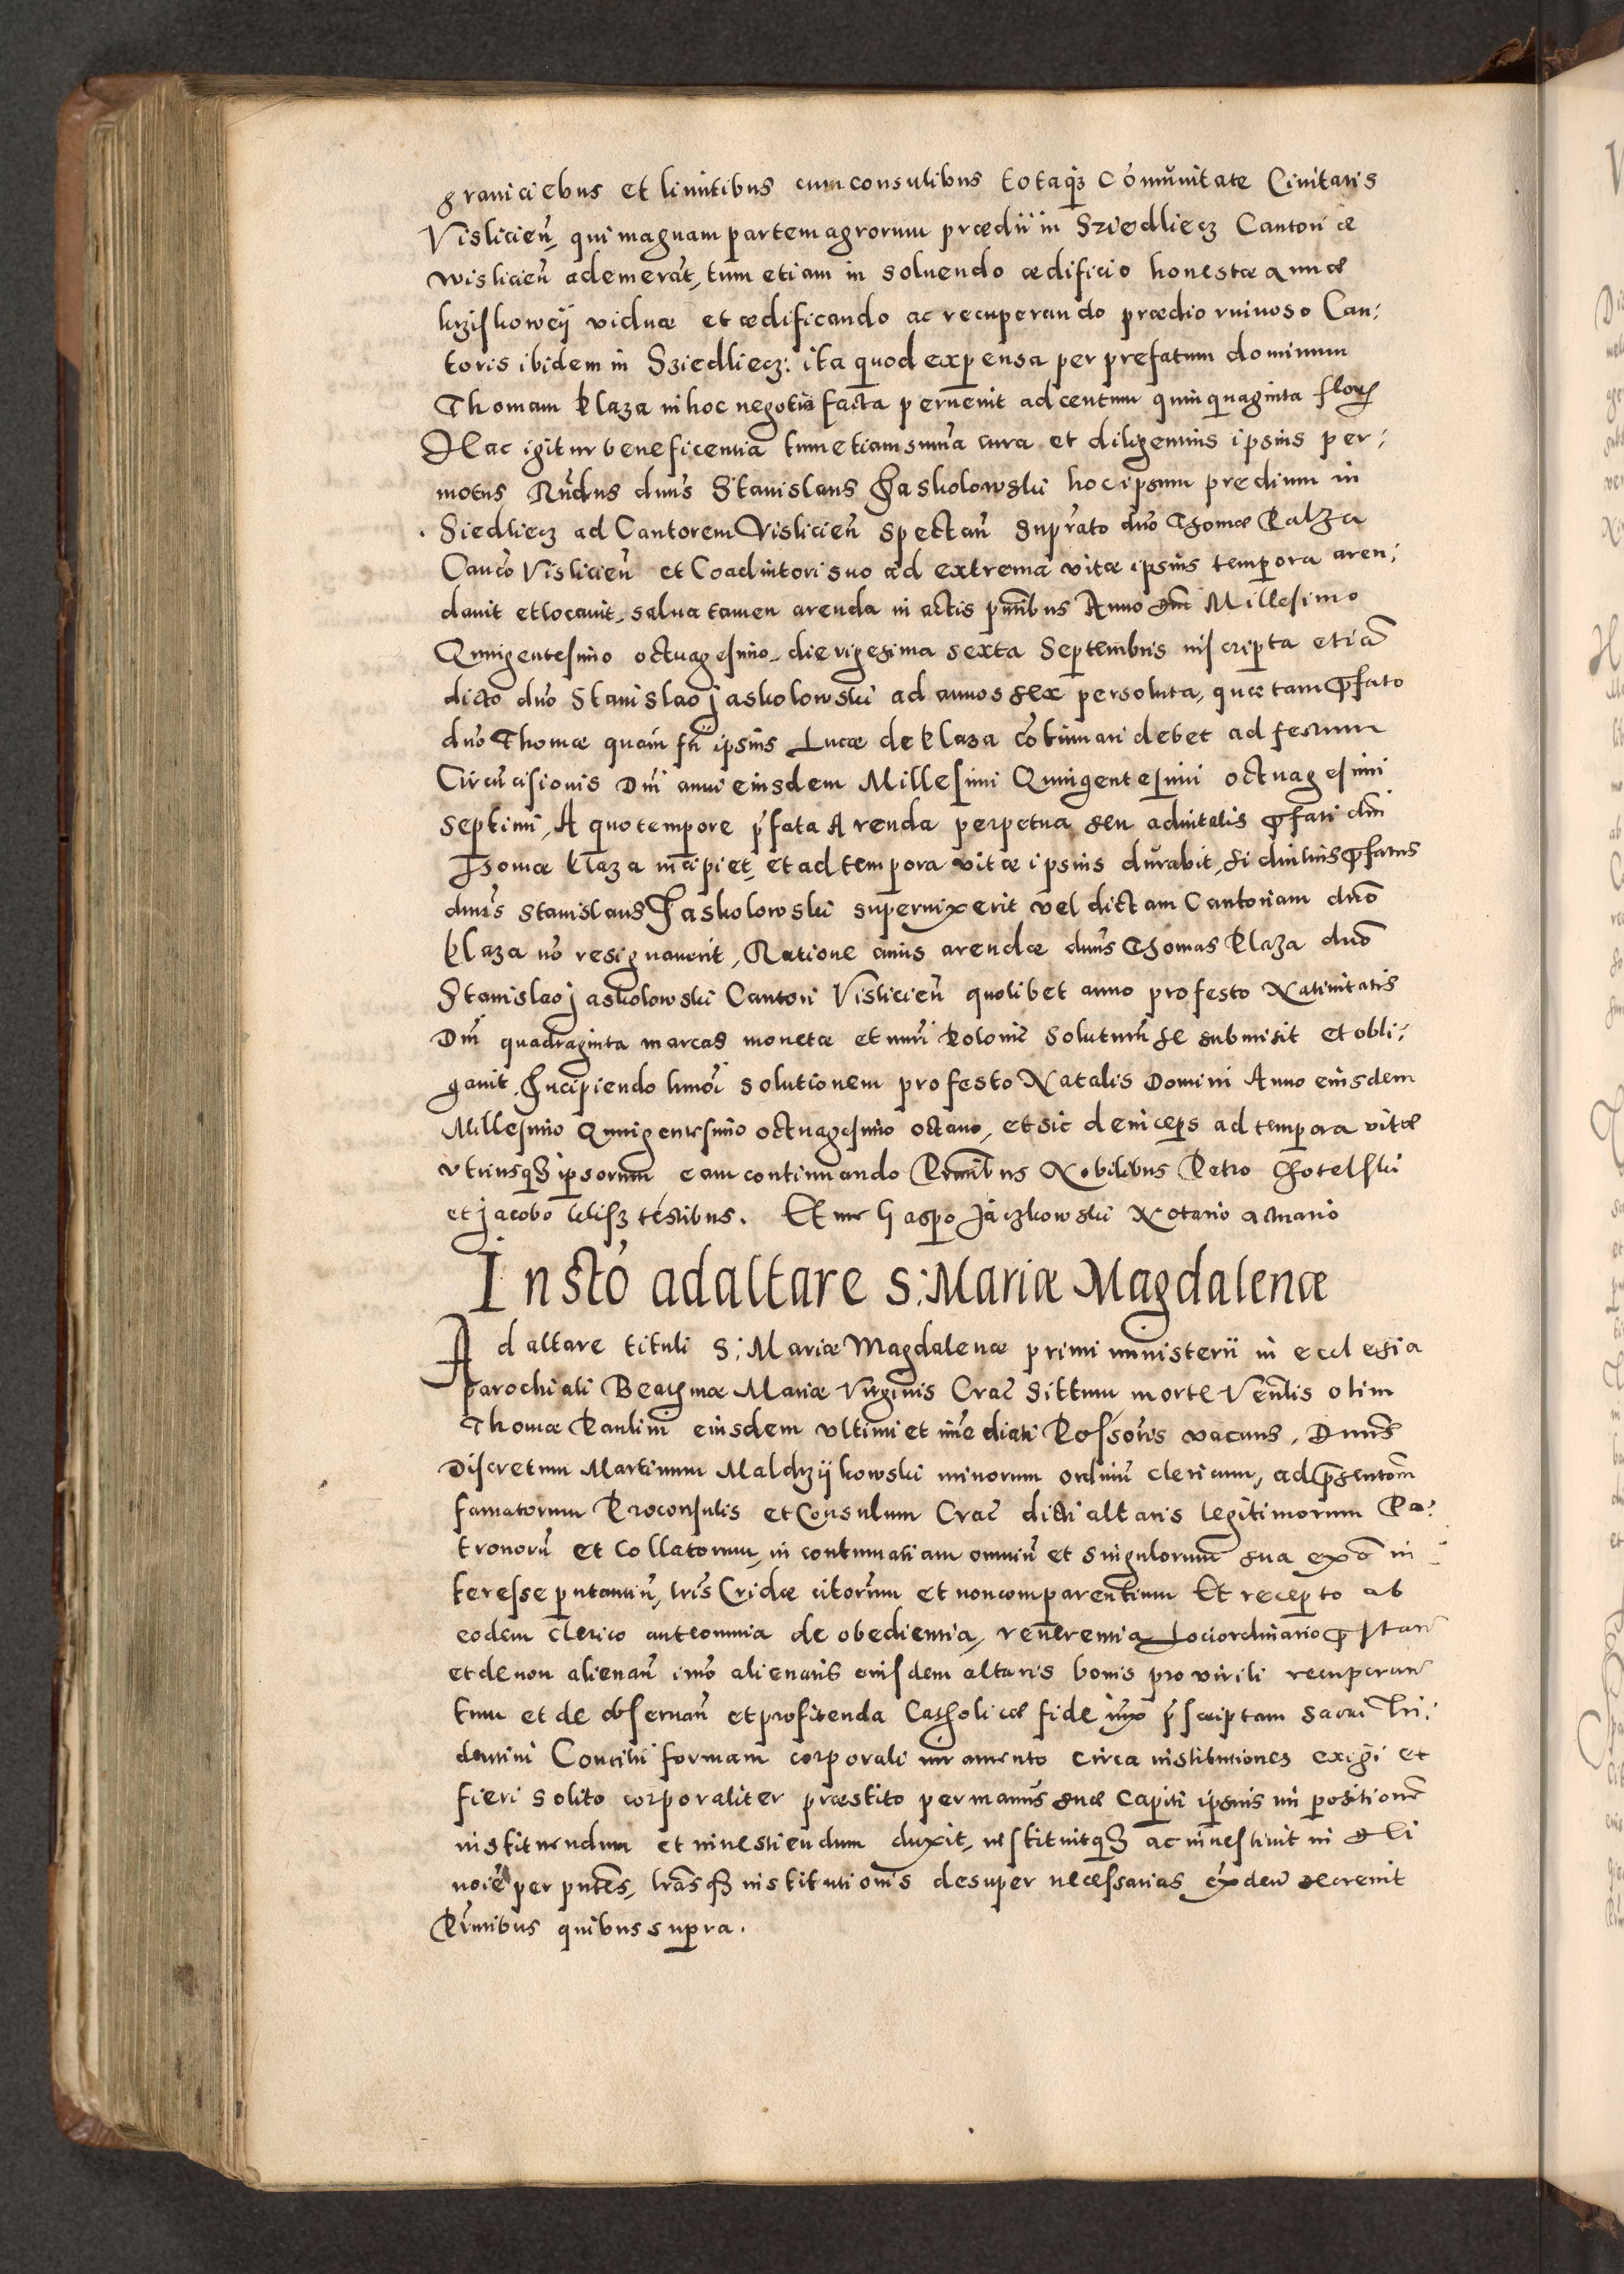 graniciebus et limitibus cum consulibus totaq₃ Com̄unitate Ciuitatis
Visliciēn, qui magnam partem agrorum prædii in Sziedliecz Cantoriæ
wisliciēn ademerāt, tum etiam in soluendo ædificio honestæ annæ
kziskoweÿ viduæ et ædificando ac recuperando prædio ruinoso Can:
toris ibidem in Sziedliecz: ita quod expensa per prefatum dominum
Thomam Klaza in hoc negotio facta peruenit ad centum quinquaginta flor
Hac igitur beneficentia tum etiam sum̄a cura et diligentiis ipsius per:
motus Rn̄dus dn̄us Stanislaus Jaskolowski hoc ipsum predium in
Siedliecz ad Cantorem Visliciēn spectān supr̄ato dn̄o Thomæ Kalza
Can̄co Visliciēn et Coadiutori suo ad extrema vitæ ipsius tempora aren:
dauit et locauit, salua tamen arenda in actis pn̄tibus Anno dn̄i Millesimo
Quingentesimo octuagesimo, die vigesima sexta Septembris inscripta etiā
dicto dn̄o Stanislao jaskolowski ad annos sex persoluta, quæ tam p̄fato
dn̄o Thomæ quam fr̄i ipsius Lucæ de Klaza cōtinuari debet ad festum
Circūcisionis Dn̄i anni eiusdem Millesimi Quingentesimi octuagesimi
septimi, A quo tempore p̄fata Arenda perpetua seu aduitalis p̄fati dn̄i
Thomæ Klaza incipiet, et ad tempora vitæ ipsius durabit, si diutius p̄fatus
dn̄us Stanislaus Jaskolowski superuixerit vel dictam Cantoriam dn̄o
Klaza nō resignauerit, Ratione cuius arendæ dn̄us Thomas Klaza dn̄o
Stanislao jaskolowski Cantori Visliciēn quolibet anno pro festo Natiuitatis
Dn̄i quadraginta marcas monetæ et nūri Polonic̄ soluturū se submisit et obli:
gauit. Incipiendo hmōi solutionem pro festo Natalis Domini Anno eiusdem
Millesimo Quingentesimo octuagesimo octauo, et sic deinceps ad tempora vitæ
vtriusq₃ ipsorum eam continuando Pn̄tibus Nobilibus Petro Chotelski
et jacobo testibus. Et me Gaspo Jaczkowski Notario actuario
Instō ad altare S: Mariæ Magdalenæ
Ad altare tituli S: Mariæ Magdalenæ primi ministerii in ecclesia
parochiali Beatissimæ Mariæ Virginis Crac̄ sittum morte Ven̄lis olim
Thomæ Paulini eiusdem vltimi et im̄ediati Possoris vacans, Dn̄us
Discretum Martinum Maldrzÿkowski minorum ordinū clericum, ad p̄sentōm
famatorum Proconsulis et Consulum Crac̄ dicti altaris legitimorum Pa:
tronorū et Collatorum, in contumatiam omniū et singulorum sua exo in
teresse putantiū, lris Cridæ citorum et non comparentium Et recepto ab
eodem clerico ante omnia de obedientia, reuerentia Lociordinario p̄stan̄
et de non alienan̄ imo alienatis eiusdem altaris bonis pro virili recuperan̄
tum et de obseruan̄ et profitenda Catholicæ fide iux̄ p̄scriptam sacri Tri:
dentini Concilii formam corporali iuramento circa institutiones exigi et
fieri solito corporaliter præstito per manus suæ capiti ipsius impositionē
instituendum et inuestiendum duxit, institiutq₃ ac inuestiuit in Dei
noīe per pn̄tes, lrasq₃ institutionis desuper necessarias exdeū decreuit
Pn̄tibus quibus supra.